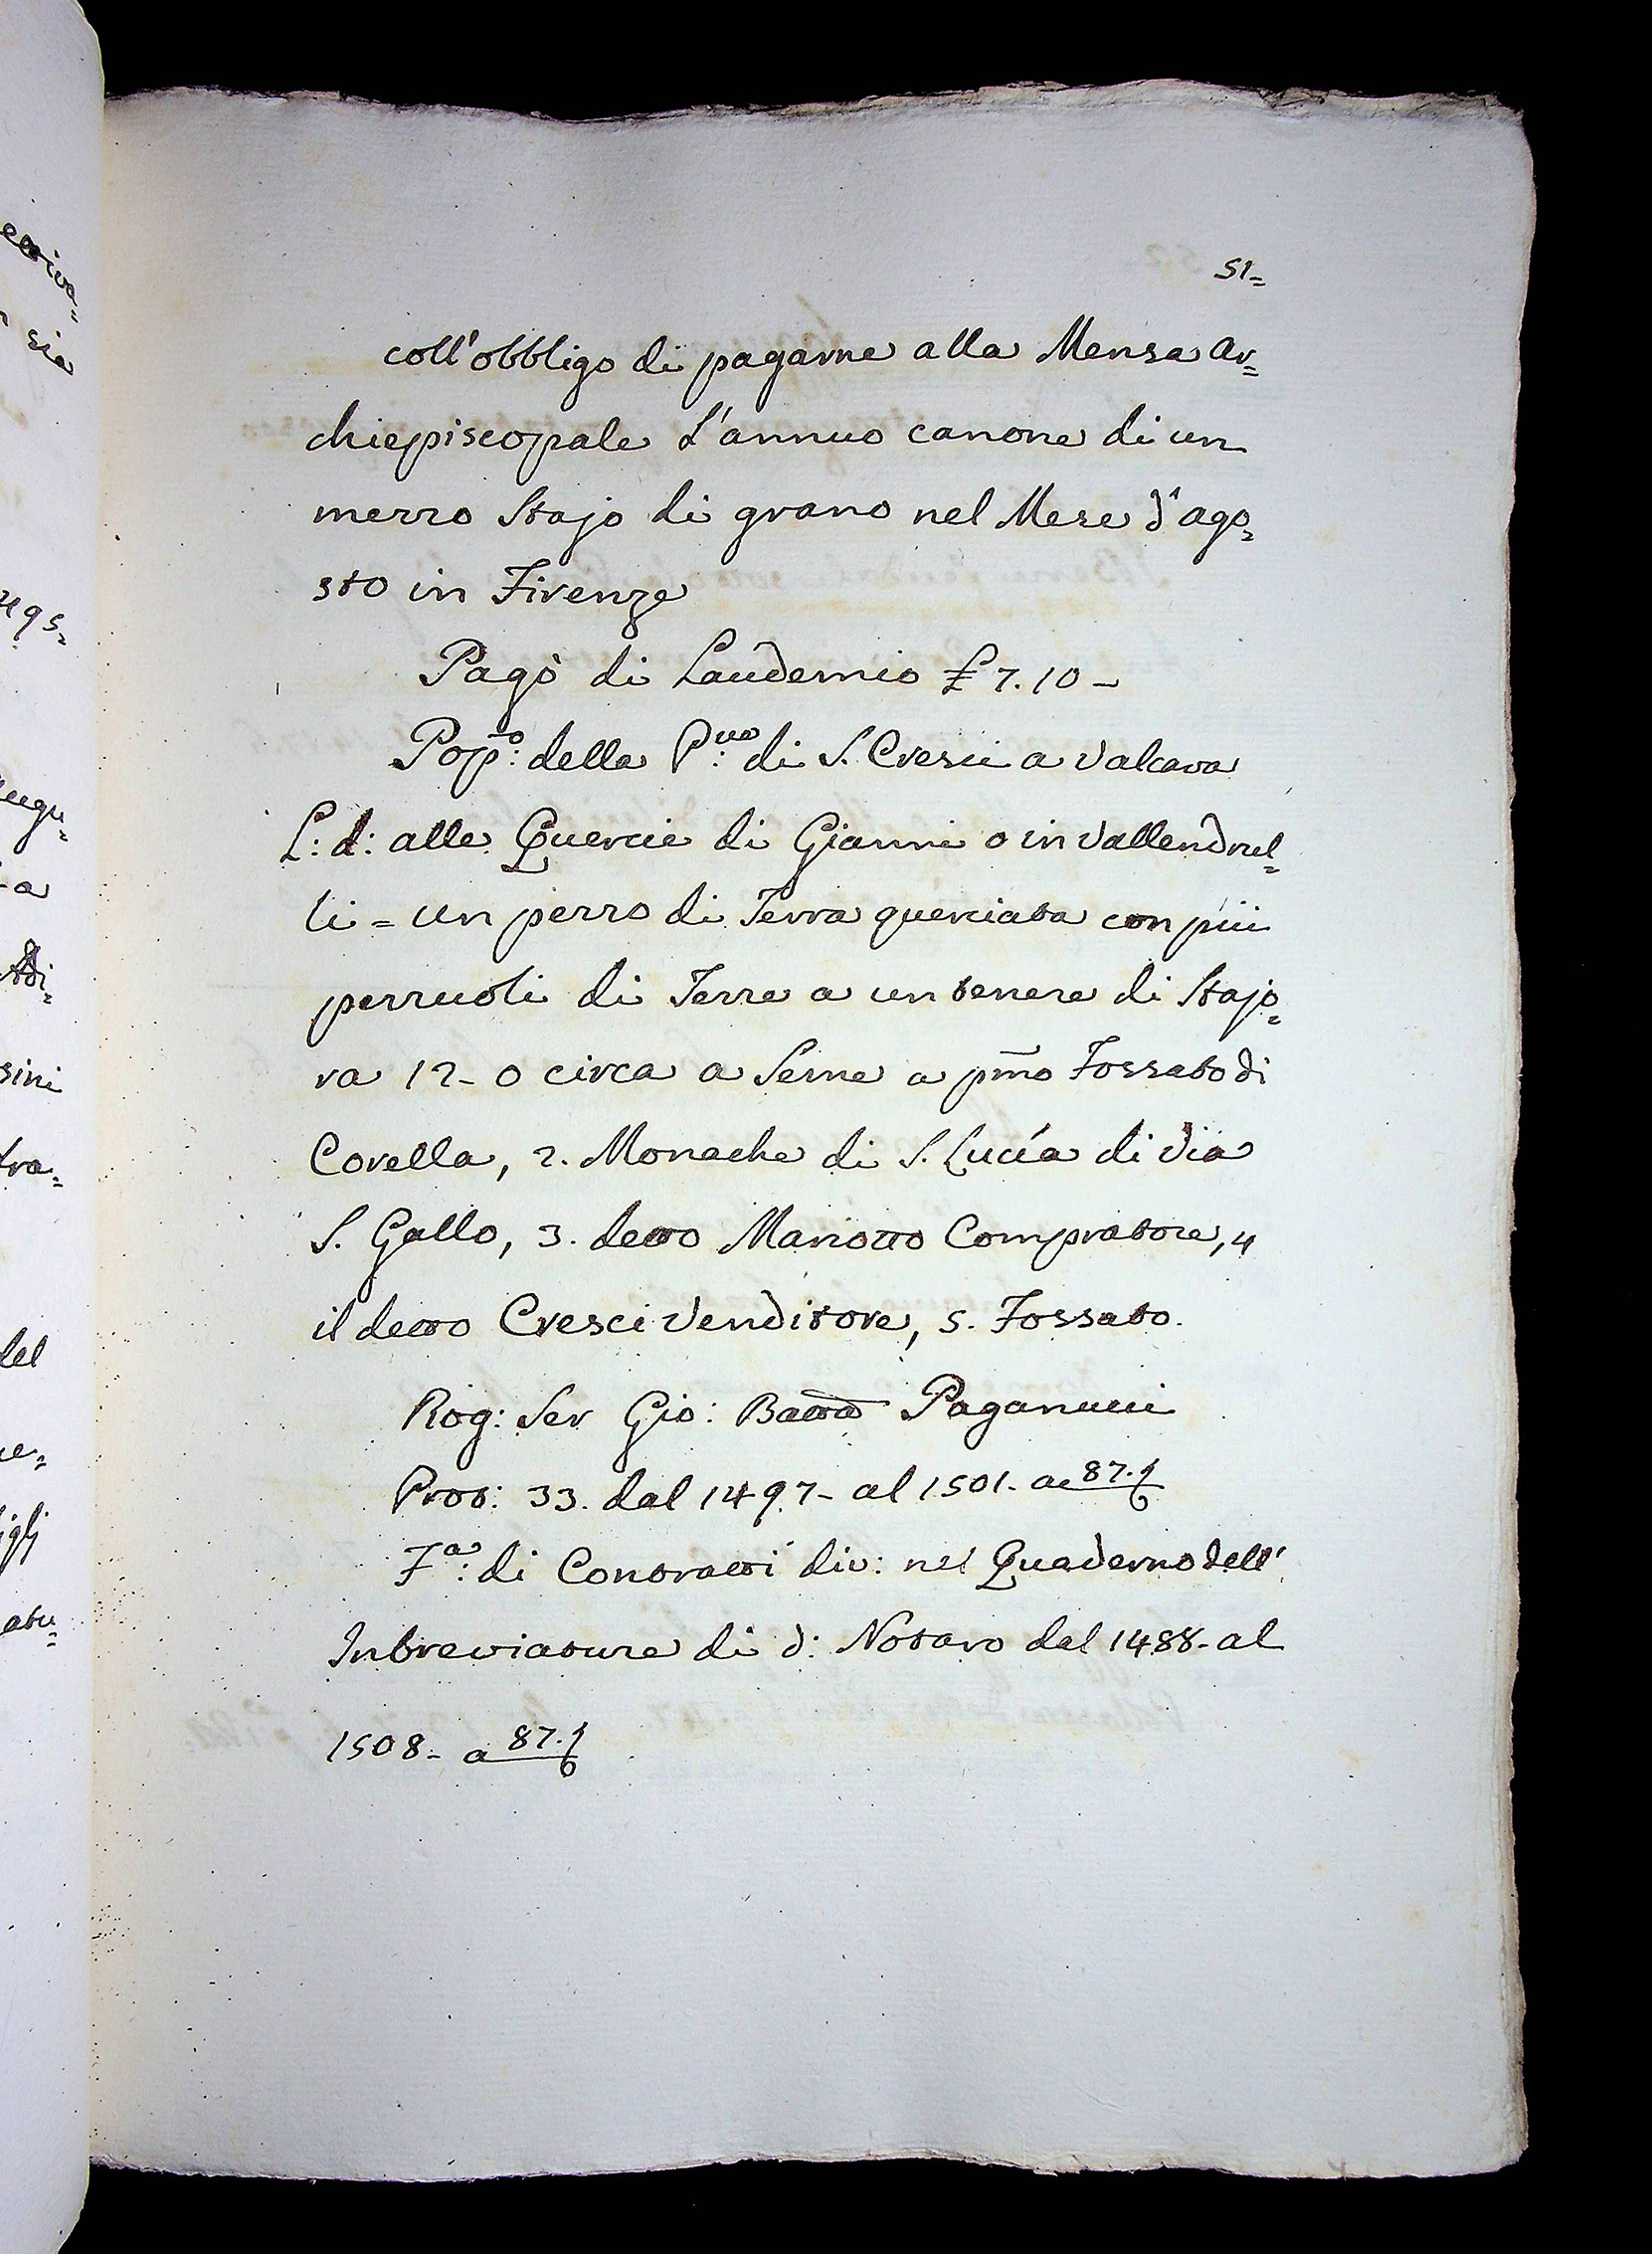 51=
coll'obbligo di pagarne alla Mensa Ar=
chiepiscopale L'annuo canone di un
mezzo Stajo di grano nel Mese d'ago=
sto in Firenze
Pagò di Laudemio £ 7.10-
Pop:º della P:ve di S. Cresci a Valcava
L: d: alle Quercie di Gianni o in Vallendrel=
li = Un pezzo di Terra querciata con più
pezzuoli di Terre a un tenere di Stajo=
ra 12- o circa a Seme a pmo Fossato di
Corella, 2. Monache di S. Lucía di Via
S. Gallo, 3. detto Mariotto Compratore, 4
il detto Cresci Venditore, 5. Fossato.
Rog: Ser Gio: Batta Paganucci
Prot: 33. dal 1497- al 1501- ac 87.
F:a di Contratti div: nel Quaderno dell'
Inbreviature di d: Notaro dal 1488- al
1508- a 87.
eriva=
sia
495=
ugu=
a
tdi=
sini
tra=
del
ue=
igli
atu=